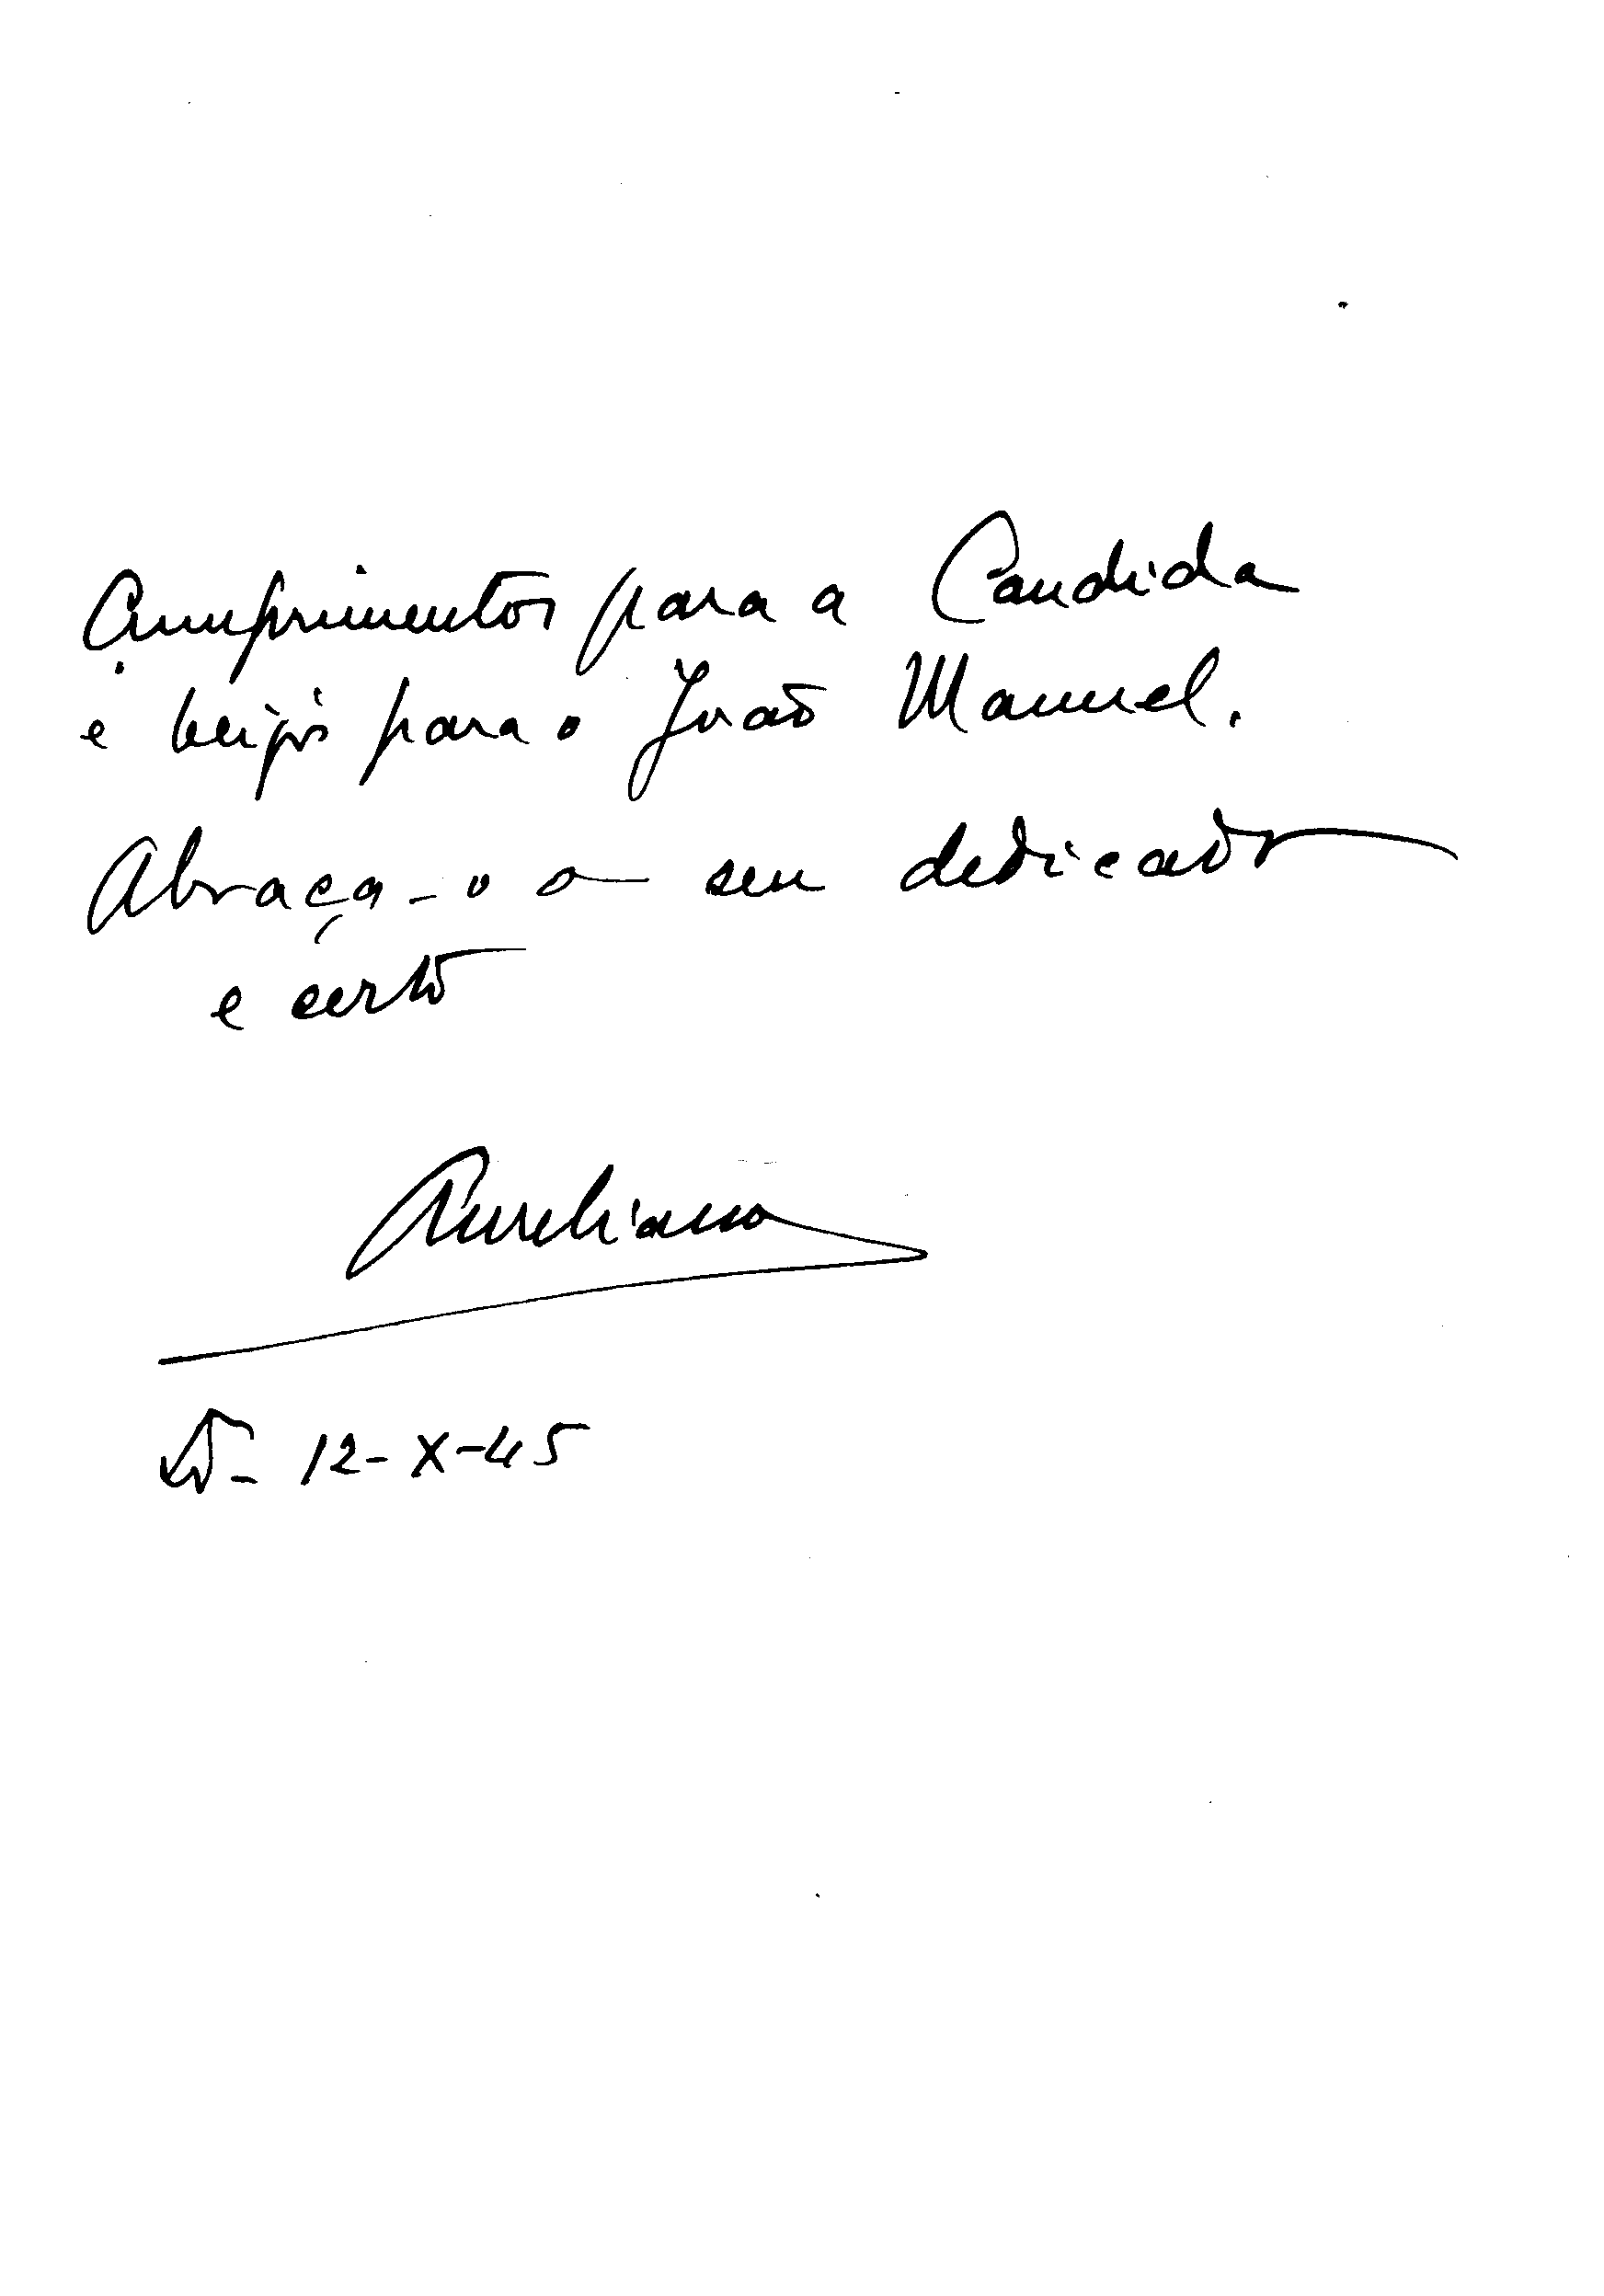 Cumprimentos para a Candida
e beijos para o João Manuel.
Abraça-o o seu dedicado
e certo
Aureliano
12-X-45